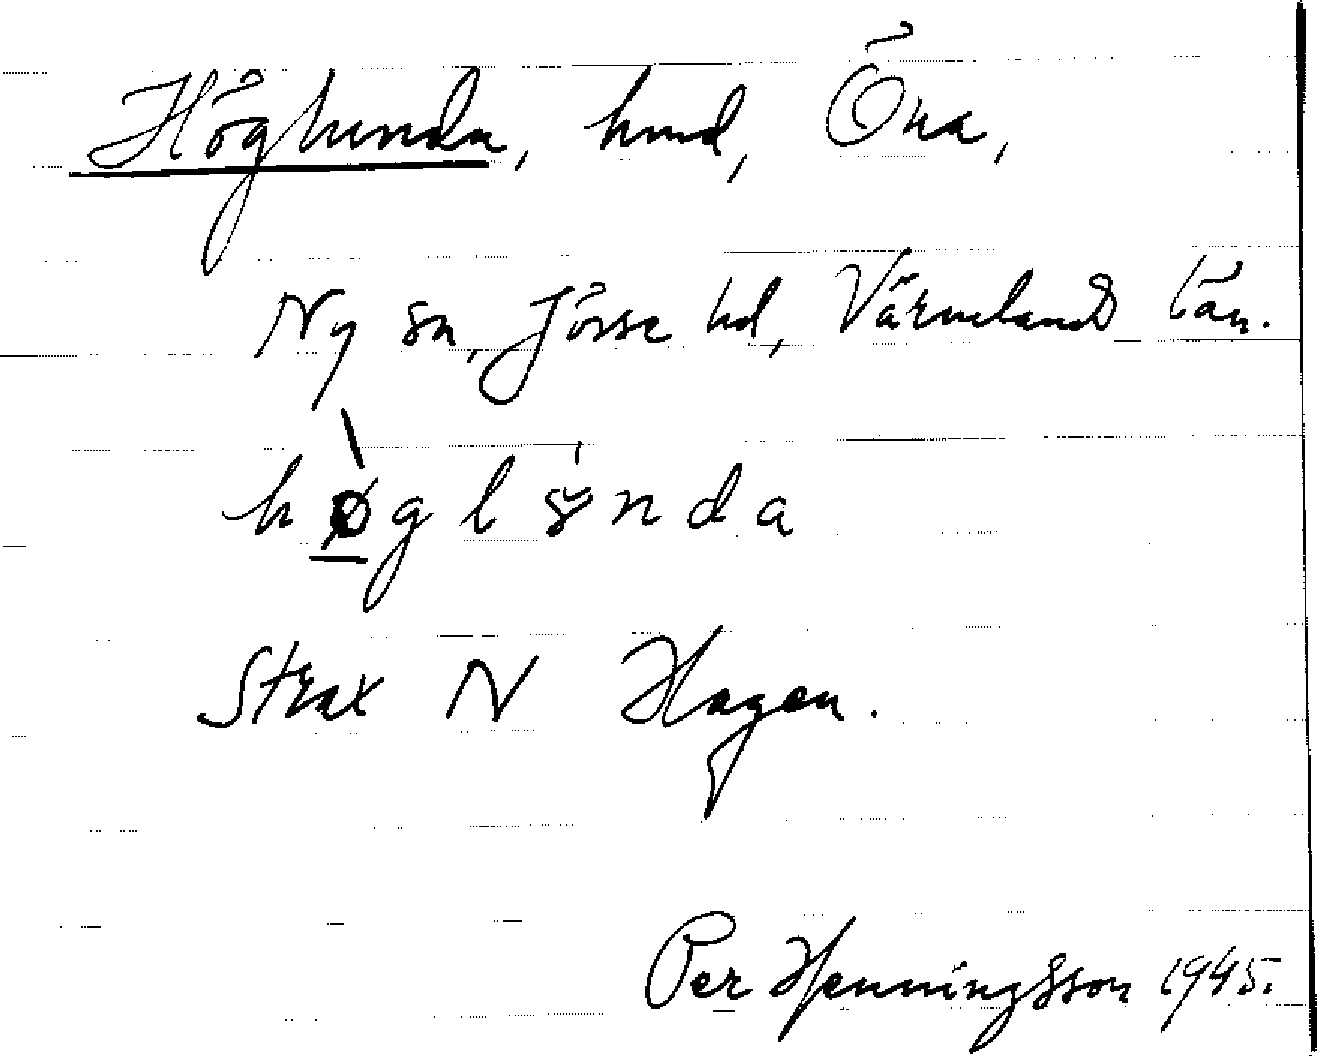 Höglunda, hmd, Öna,
Ny sn, Jösse hd, Värmlands län.
høglonda
Strax N Hagen.
Per Henningsson 1945.